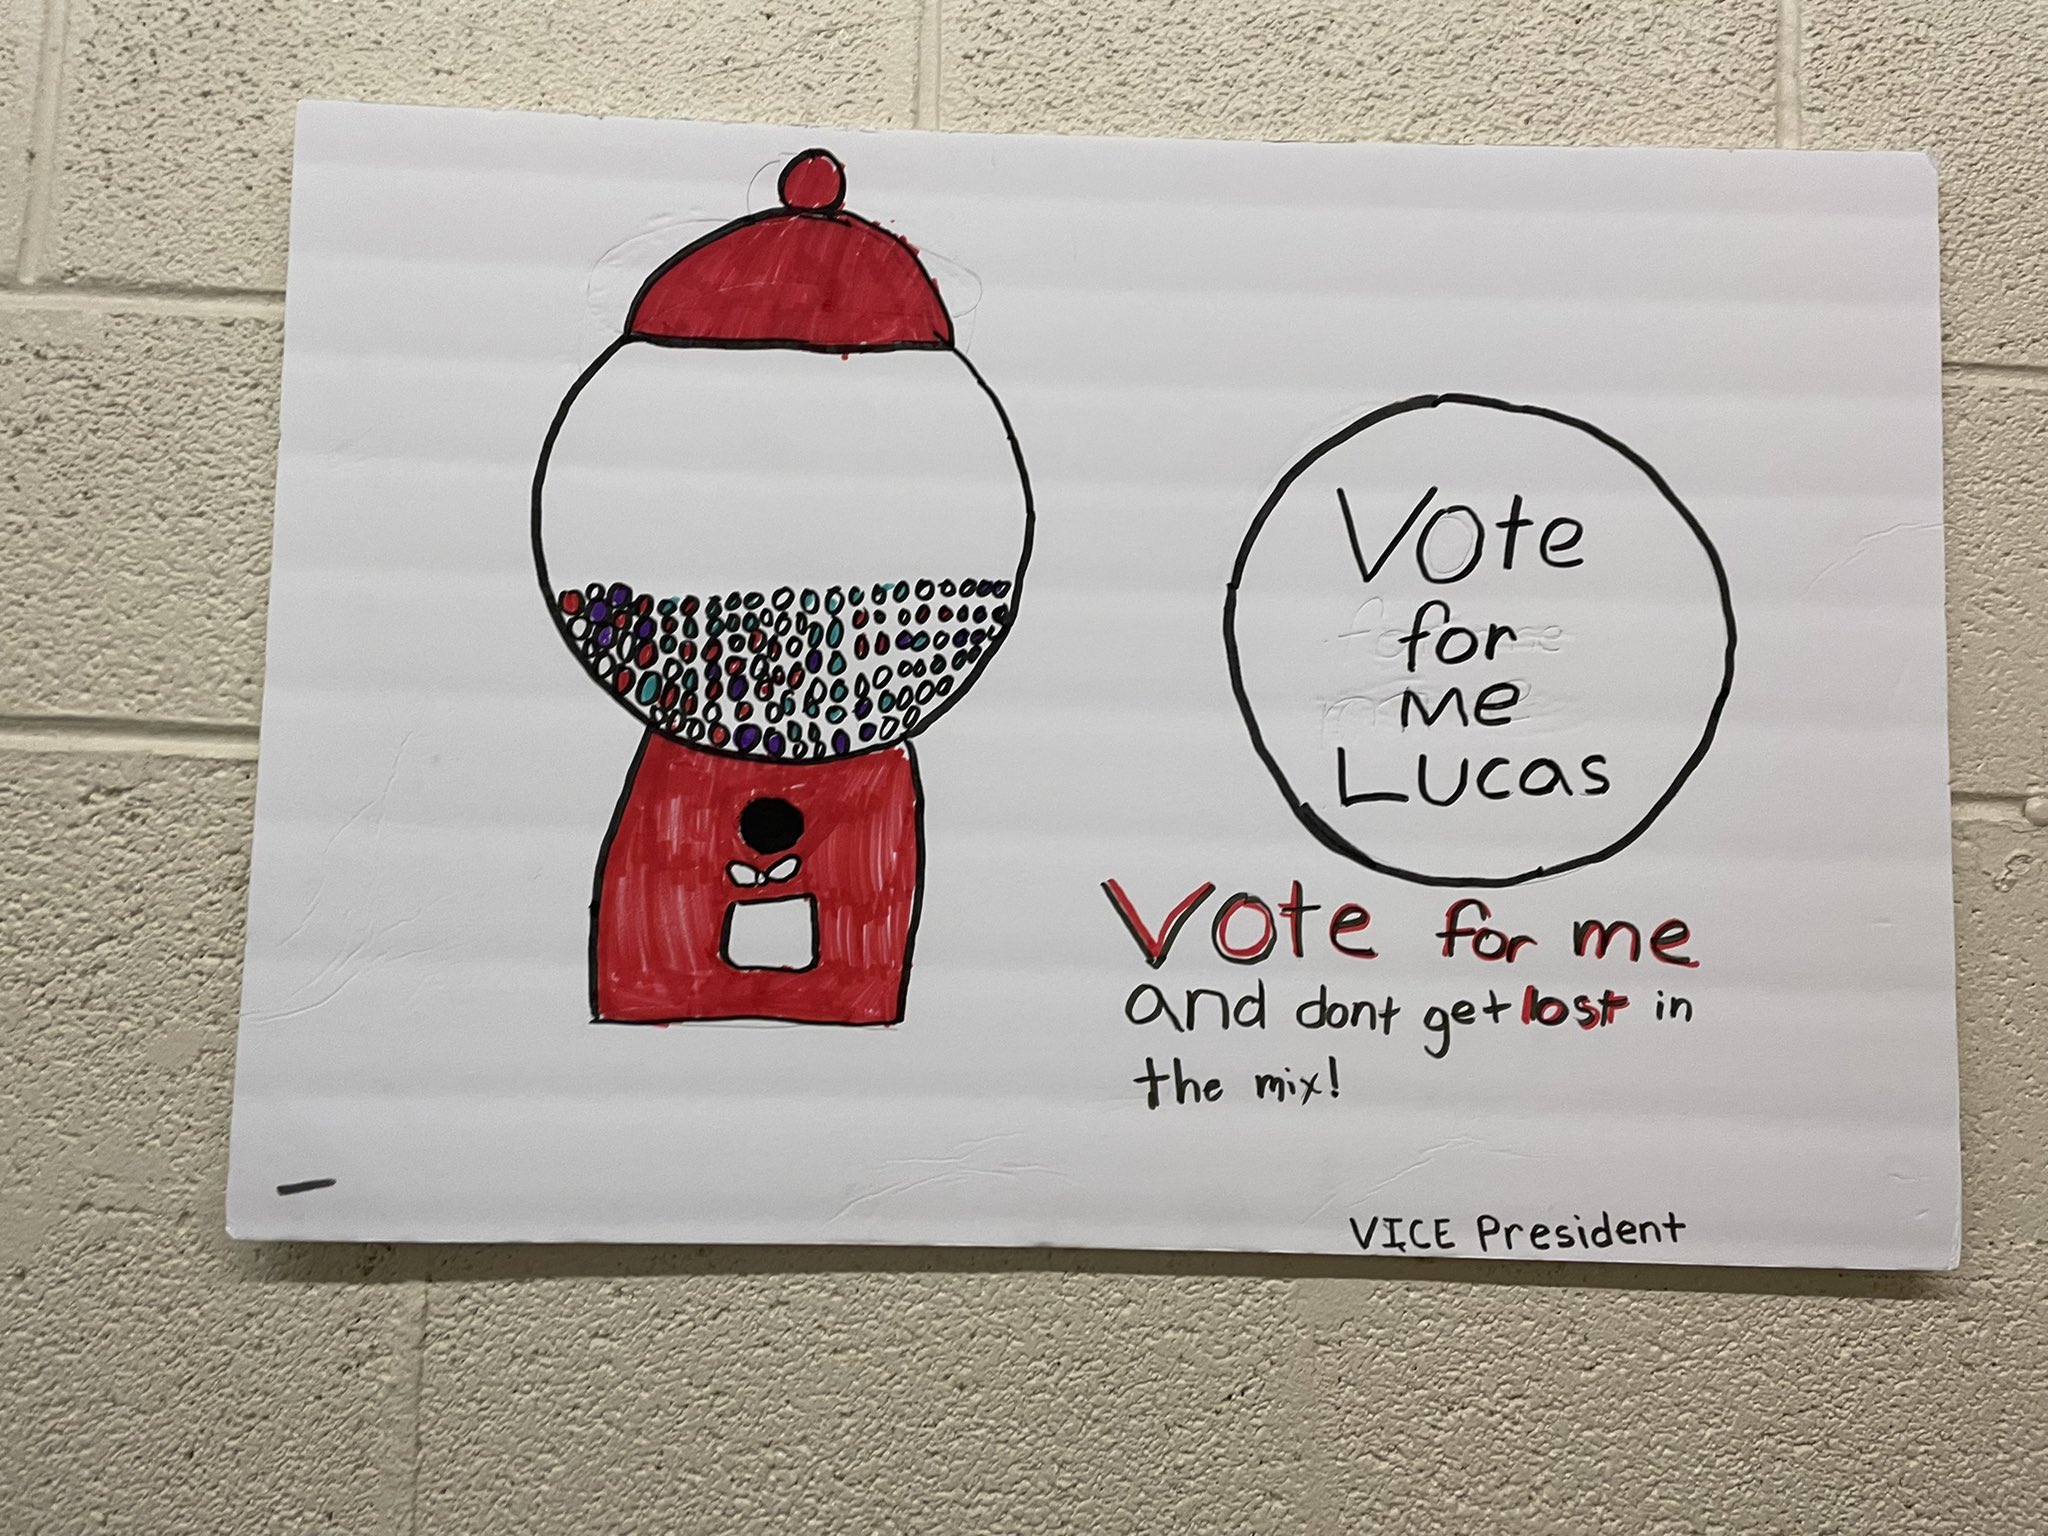 Vote
for
me
Lucas
Vote for me
and dont get lost in
the mix!
VICE President